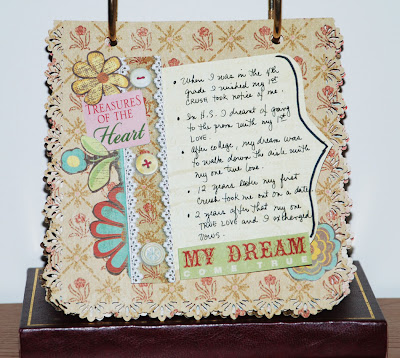 TREASURES
OF THE
Heart
• When I was in the 8th
grade I wished my 1st
CRUSH took notice of me.
• In H.S. I dreamt of going
to the prom with my 1st
LOVE.
• After college, my dream was
to walk down the aisle with
my one true love.
• 12 years later my first
Crush took me out on a date.
• 2 years after that my one
TRUE LOVE and I exchanged
VOWS.
MY DREAM
COME TRUE